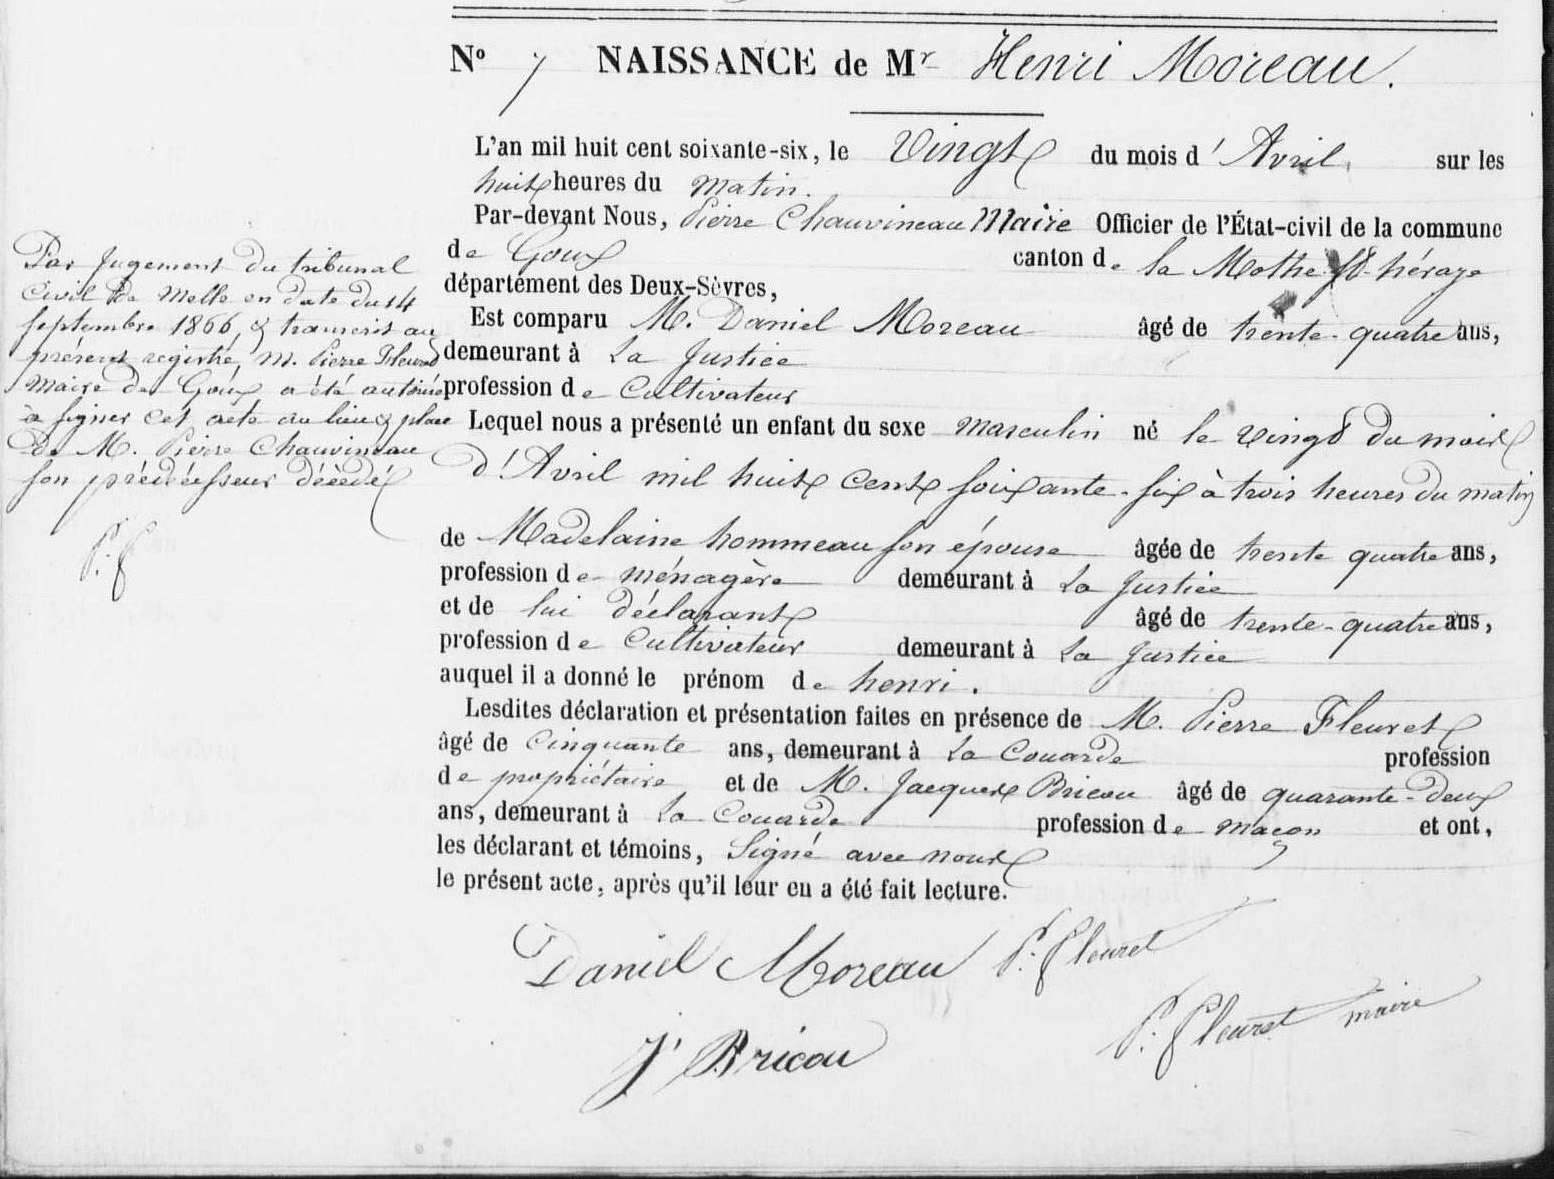 N° 7 NAISSANCE de Mr Henri Moreau.
L'an mil huit cent soixante-six, le Vingt du mois d'Avril sur les
huit heures du matin.
Par-devant Nous, Pierre Chauvineau Maire Officier de l'État-civil de la commune
de Goux canton de la Mothe St héraye
département des Deux-Sèvres,
Est comparu M. Daniel Moreau âgé de trente-quatre ans,
demeurant à La Justice
profession de Cultivateur
Lequel nous a présenté un enfant du sexe masculin né le vingt du mois
d'Avril mil huit cent soixante-six à trois heures du matin
de Madelaine hommeau son épouse âgée de trente quatre ans,
profession de ménagère demeurant à La Justice
et de lui déclarant âgé de trente-quatre ans,
profession de Cultivateur demeurant à La Justice
auquel il a donné le prénom de henri.
Lesdites déclaration et présentation faites en présence de M. Pierre Fleuret
âgé de cinquante ans, demeurant à La Couarde profession
de propriétaire et de M. Jacques Bricou âgé de quarante-deux
ans, demeurant à La Couarde profession de maçon et ont,
les déclarant et témoins, Signé avec nous
le présent acte, après qu'il leur en a été fait lecture.
Daniel Moreau P. Fleuret
J Bricou P. Fleuret maire
Par Jugement du tribunal
Civil de Melle en date du 14
Septembre 1866, & transcrit au
présent registre, M. Pierre Fleuret
Maire de Goux a été autorisé
à signer cet acte au lieu & place
de M. Pierre Chauvineau
son prédécesseur décédé
P. F